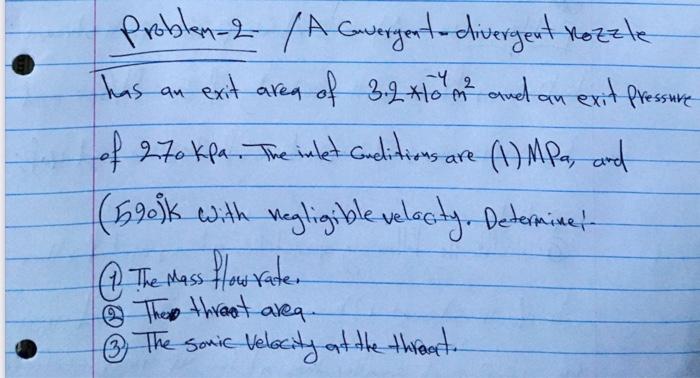 Problem-2 / A Convergent-divergent nozzle
has an exit area of 3.2 *10⁻⁴ m² and an exit pressure
of 270 kpa. The inlet Conditions are (1) MPa, and
(590)°K with negligible velocity. Determine:-
① The Mass flow rate.
② The throat area.
③ The sonic Velocity at the throat.